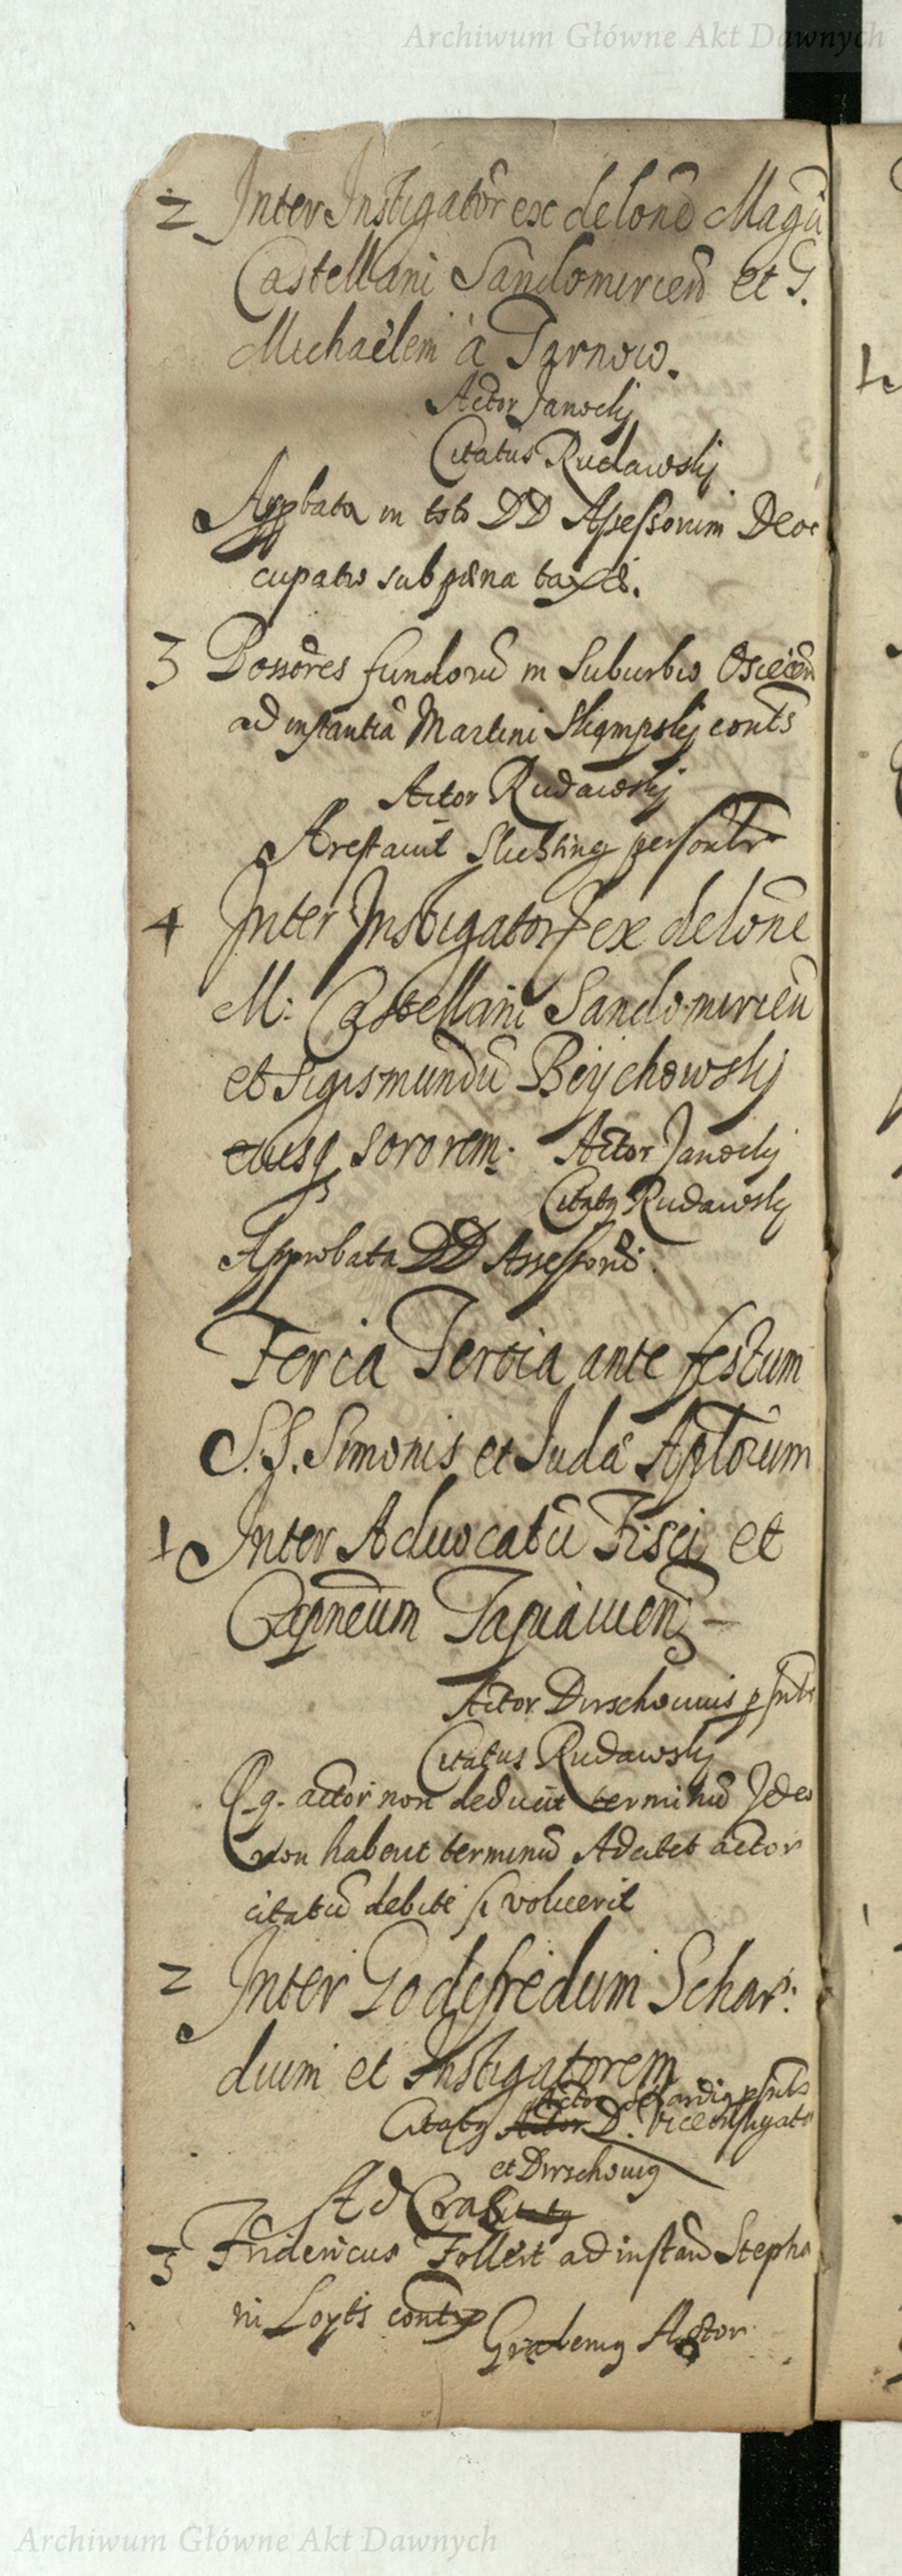 Archiwum Główne Akt Dawnych
2 Inter Instigatōr ex delōnē Magn̄i
Castellani Sandomirien̄ et G.
Michaēlem à Tarnow.
Actor Janoclij
Citatus Rudawskij
Appbata in toto DD Assessorum Deoc
cupatis sub pœna taxæ.
3 Possōres fundorū in Suburbio
ad instantiā Martini contᵗˢ
Actor Rudawskij
Arestavit persōnlr
4 Inter Instigatorē ex delōne
M: Castellani Sandomirien̄
et Sigismundū Beijchowskij
eiusq sororem. Actor Janoclij
Citatq Rudawskij
Approbata DD Assessorū.
Feria Tertia ante festum
S.S. Simonis et Judæ Aplōrum
1 Inter Advocatū Fisci et
Capneum Tapiauien̄
Actor Dirschouius pſnts
Citatus Rudawskij
Q.g. actor non deducit terminū Ideo
non habent terminū Adcitet actor
citatū debitè si voluerit
2 Inter Godefredum Schar:
dium et Instigatorem
Actor pſnts
Citatq Actor D. Viceinstigator
et Dirschouiq
Ad Cras
3 Fridericus Follert ad instan̄ Stepha
ni Loyts contᵗˢ
Grabeniq Actor
Archiwum Główne Akt Dawnych